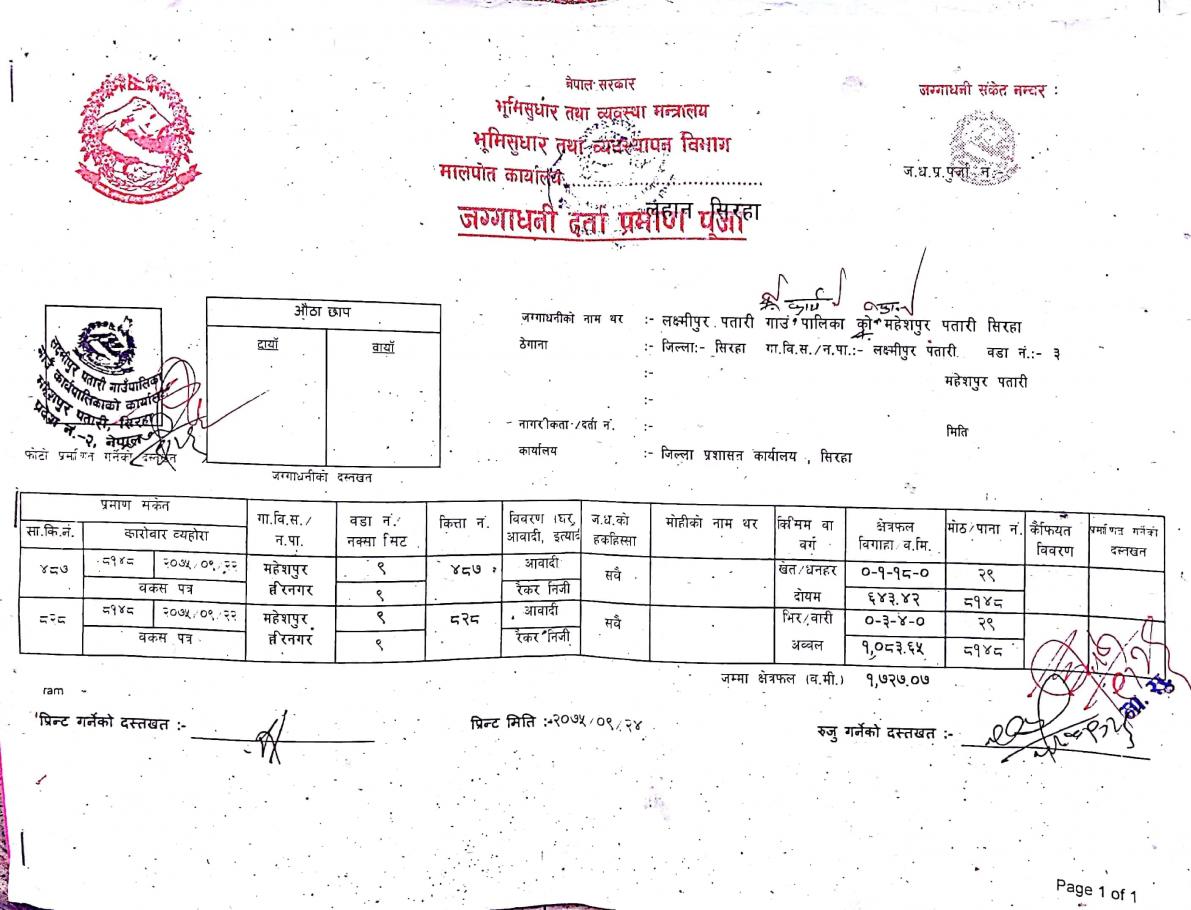 नेपाल सरकार
भूमिसुधार तथा व्यवस्था मन्त्रालय
भूमिसुधार तथा व्यवस्थापन विभाग
मालपोत कार्यालय
लहान सिरहा
जग्गाधनी दर्ता प्रमाण पूर्जा
जग्गाधनी संकेत नम्बर :
ज.ध.प्र.पुर्जा न.-
लक्ष्मीपुर पतारी गाउँपालिका
गाउँ कार्यपालिकाको कार्यालय
महेशपुर पतारी, सिरहा
प्रदेश नं.-२, नेपाल
फोटो प्रमाणित गर्नेको दस्तखत
औठा छाप
दायाँ बायाँ
जग्गाधनीको दस्तखत
जग्गाधनीको नाम थर :- लक्ष्मीपुर पतारी गाउँ पालिका को महेशपुर पतारी सिरहा
ठेगाना :- जिल्ला:- सिरहा गा.वि.स./न.पा.:- लक्ष्मीपुर पतारी वडा नं.:- ३
:- महेशपुर पतारी
:-
नागरीकता/दर्ता नं. :- मिति
कार्यालय :- जिल्ला प्रशासन कार्यालय, सिरहा
प्रमाण संकेत गा.वि.स./ न.पा. वडा नं./ नक्सा सिट कित्ता नं. विवरण (घर, आवादी, इत्याद ज.ध.को हकहिस्सा मोहीको नाम थर किसिम वा वर्ग क्षेत्रफल विगाहा/व.मि. मोठ/पाना नं. कैफियत विवरण प्रमाणित गर्नेको दस्तखत
सा.कि.नं. कारोबार व्यहोरा
४८७ ८१४८ २०७५/०९/२२ महेशपुर ९ ४८७ आवादी सबै खेत/धनहर ०-१-१८-० २९
वकस पत्र हीरनगर ९ रैकर निजी दोयम ६४३.४२ ८१४८
८२८ ८१४८ २०७५/०९/२२ महेशपुर ९ ८२८ आवादी सबै भिर/वारी ०-३-४-० २९
वकस पत्र हीरनगर ९ रैकर निजी अव्वल १,०८३.६५ ८१४८
जम्मा क्षेत्रफल (व.मी.) १,७२७.०७
ram
प्रिन्ट गर्नेको दस्तखत :-
प्रिन्ट मिति :-२०७५/०९/२४
रुजु गर्नेको दस्तखत :-
ना. सु
Page 1 of 1